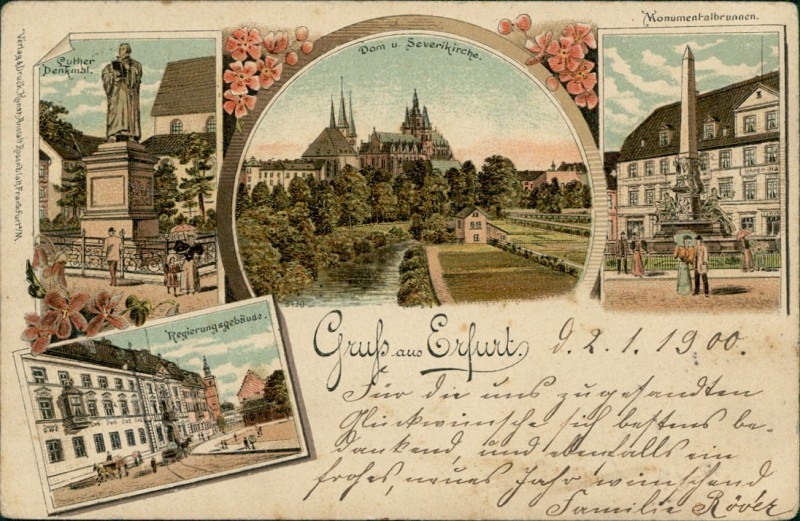 Luther
Denkmal.
Dom u. Severikirche.
Monumentalbrunnen.
Regierungsgebäude.
5130
Gruß aus Erfurt.
d. 2. 1. 1900.
Für die uns zugesandten
Glückwünsche sich bestens be-
dankend, und ebenfalls ein
frohes, neues Jahr wünschend
Familie Röver
Verlag & Druck
Frankfurt/M.